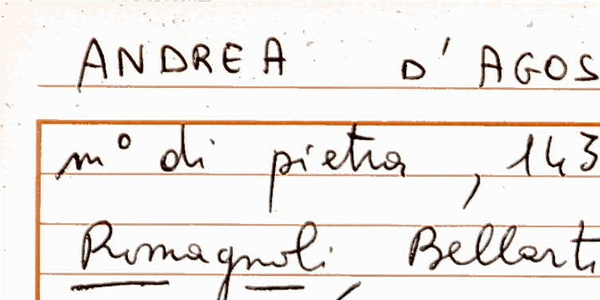 ANDREA D'AGOS
m° di pietra, 143
Romagnoli Bellarti